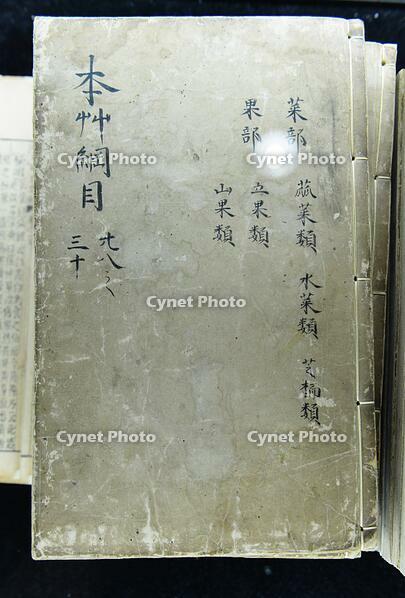 菜部 蓏菜類 水菜類 芝栭類
果部 五果類
山果類
本艸綱目
廿八
三十
Cynet Photo
Cynet Photo
Cynet Photo
Cynet Photo
Cynet Photo